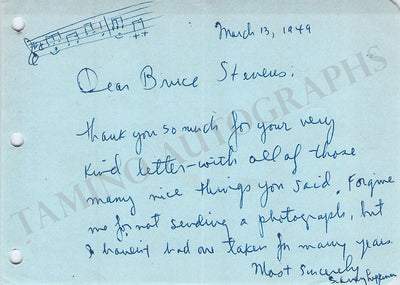 March 13, 1949
Dear Bruce Stevens:
Thank you so much for your very
kind letter-with all of those
many nice things you said. Forgive
me for not sending a photograph, but
I having had one taken for many years.
Most Sincerely
TAMINO AUTOGRAPHS